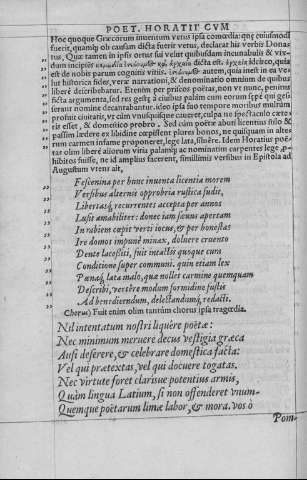 POET. HORATII CVM
Hoc quoque Græcorum inuentum vetus ipsa comœdia: quę cuiusmodi
fuerit, quamq́; ob causam dicta fuerit vetus, declarat his verbis Dona-
tus, Quæ tamen in ipso ortus sui velut quibusdam incunabulis & vix-
dum incipiens dicta est. ἀρχαῖα idcirco, quia
est de nobis parum cogniti vitiis. autem, quia inest in ea ve-
lut historica fides, veræ narrationis, & denominatio omnium de quibus
liberè describebatur. Etenim per priscos poëtas, non vt nunc, penitus
ficta argumenta, sed res gestę à ciuibus palàm cum eorum sępè qui ges-
serant nomine decantabantur. ideo ipsa suo tempore moribus multum
profuit ciuitatis, vt cùm vnusquisque caueret, culpa ne spectaculo cæte-
ris esset, & domestico probro. Sed cùm poëtæ abuti licentius stilo &
passim lædere ex libidine cœpissent plures bonos, ne quisquam in alte-
rum carmen infame proponeret, lege lata, siluêre. Idem Horatius poë-
tas olim liberè aliorum vitia palamq́; ac nominatim carpentes lege p-
hibitos fuisse, ne id amplius facerent, simillimis versibus in Epistola ad
Augustum vtens ait,
Fescenina per hunc inuenta licentia morem
Versibus alternis opprobria rustica fudit,
Libertasq́; recurrentes accepta per annos
Lusit amabiliter: donec iam sæuus apertam
In rabiem cœpit verti iocus, & per honestas
Ire domos impunè minax, doluere cruento
Dente lacessiti, fuit intactis quoque cura
Conditione super communi. quin etiam lex
Pœnaq́; lata malo, quæ nollet carmine quemquam
Describi, vertêre modum formidine fustis
Ad benedicendum, delectandumq́; redacti.
Chorus) Fuit enim olim tantùm chorus ipsa tragœdia.
Nil intentatum nostri liquêre poëtæ:
Nec minimum meruêre decus vestigia græca
Ausi deserere, & celebrare domestica facta:
Vel qui prætextas, vel qui docuere togatas.
Nec virtute foret clarisue potentius armis,
Quàm lingua Latium, si non offenderet vnum-
Quemque poëtarum limæ labor, & mora. vos ô
Pom-